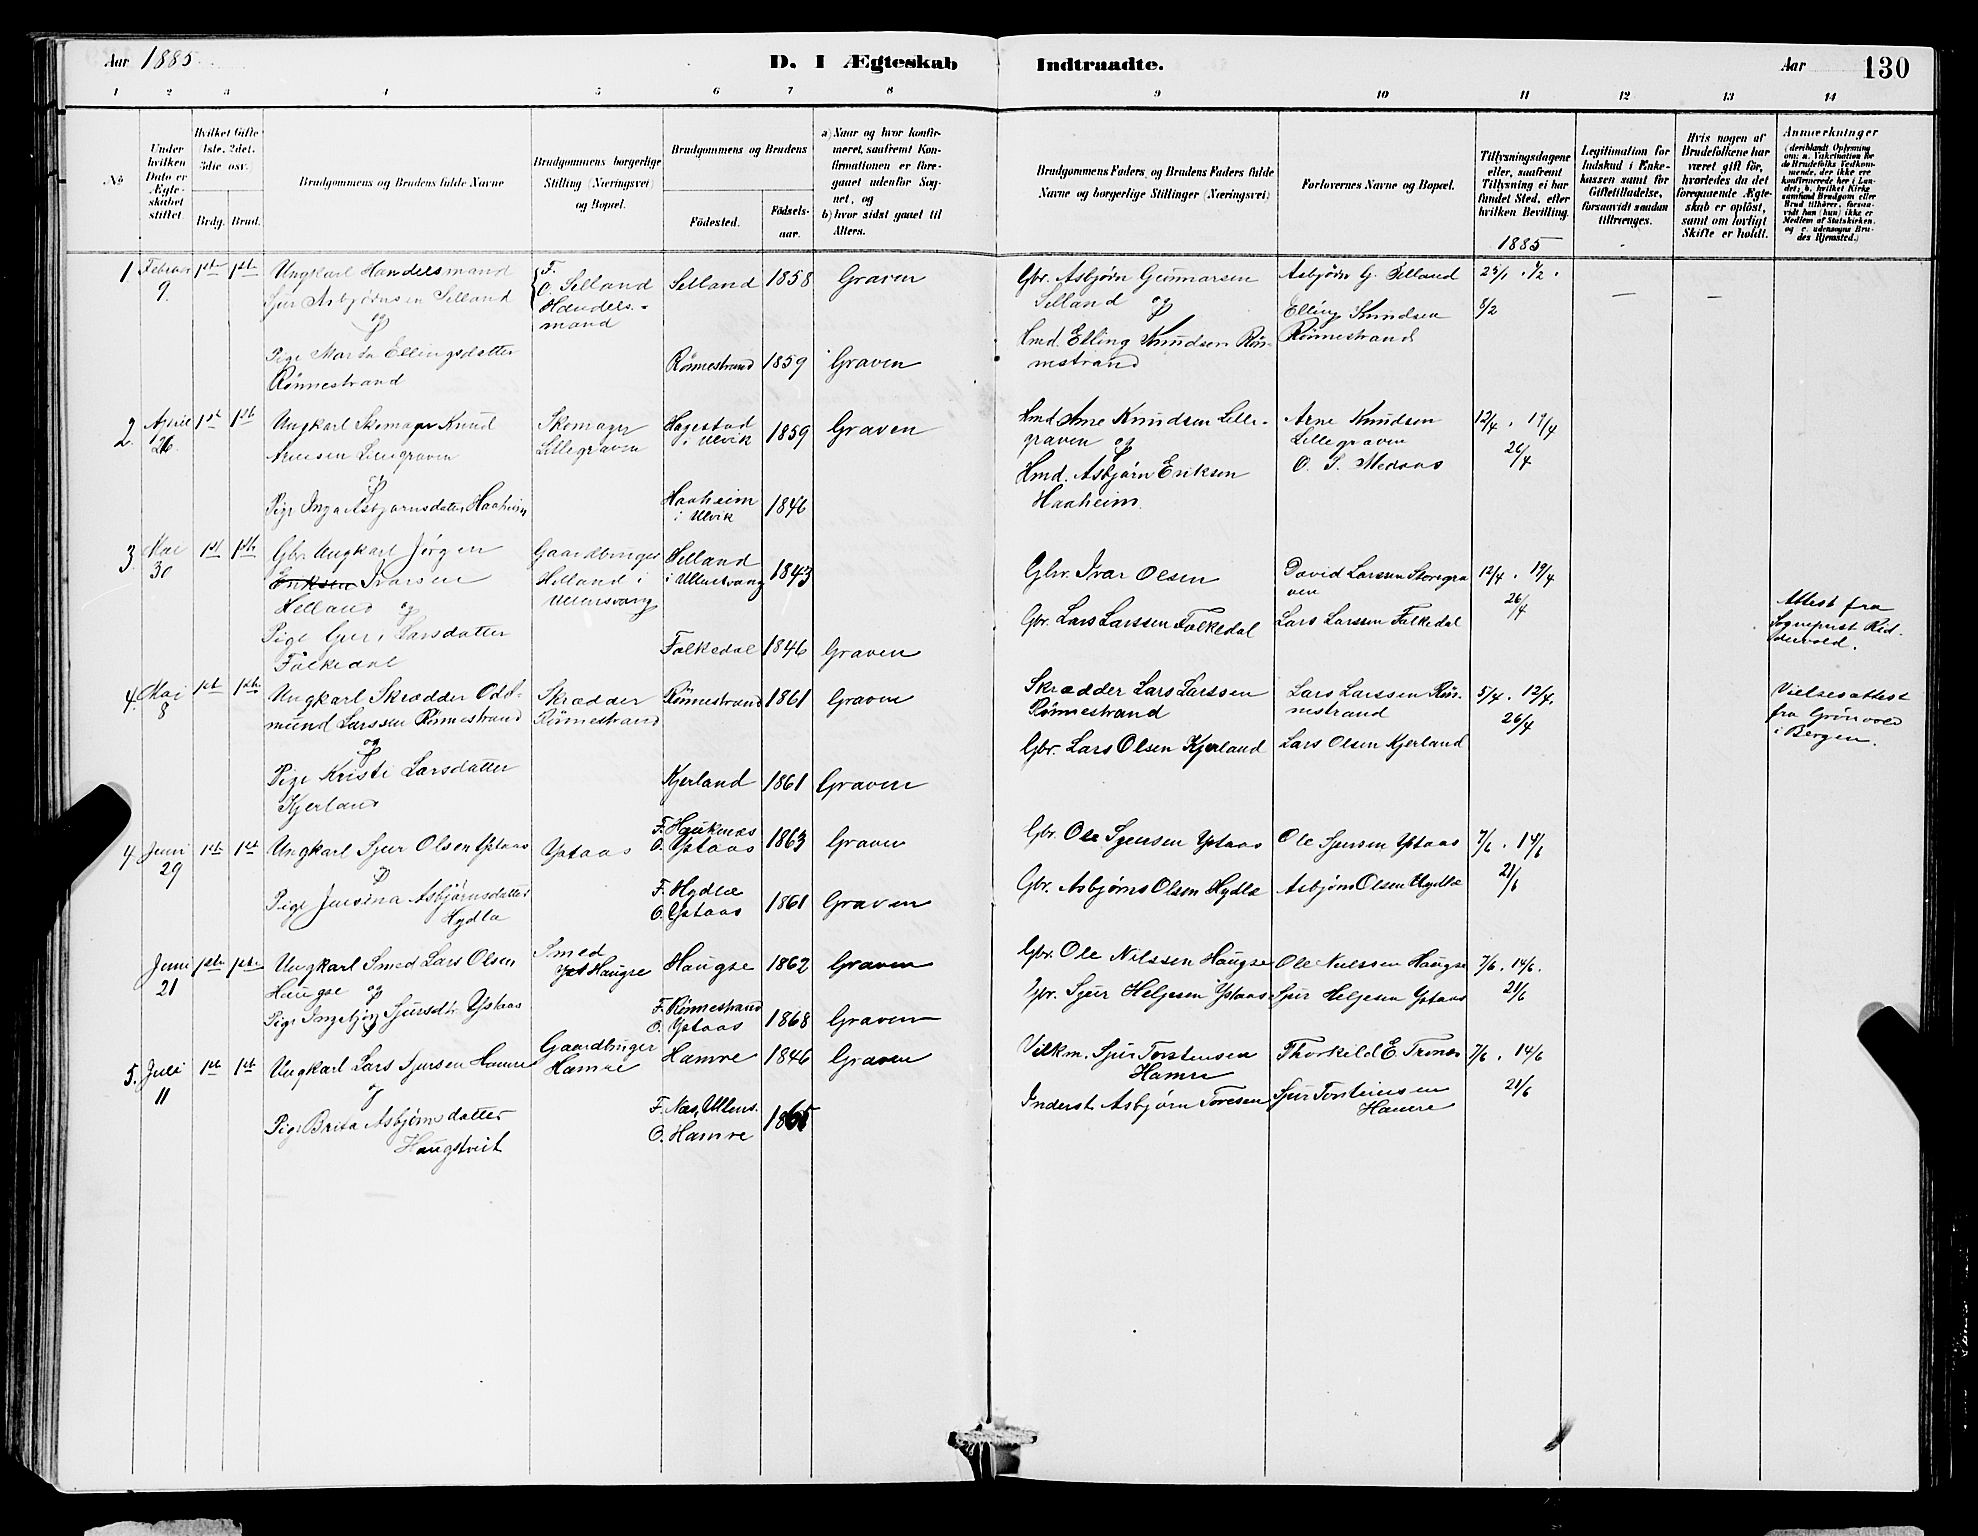 Aar 1885
D. I Ægteskab Indtraadte.
Aar 130
1 2 3 4 5 6 7 8 9 10 11 12 13 14
No
Under hvilken Dato er Ægteskabet stiftet.
Hvilket Gifte (1ste, 2det, 3die osv.
Brdg. Brud.
Brudgommens og Brudens fulde Navne
Brudgommens borgerlige Stilling (Næringsvei) og Bopæl.
Brudgommens og Brudens
Fødested.
Fødselsaar.
a) Naar og hvor konfirmeret, saafremt Konfirmationen er foregaaet udenfor Sognet, og
b) hvor sidst gaaet til Alters.
Brudgommens Faders, og Brudens Faders fulde Navne og borgerlige Stillinger (Næringsvei)
Forlovernes Navne og Bopæl.
Tillysningsdagene eller, saafremt Tillysning ei har fundet Sted, efter hvilken Bevilling.
Legitimation for Indskud i Enkekassen samt for Giftetilladelse, forsaavidt saadan tiltrænges.
Hvis nogen af Brudefolkene har været gift før, hvorledes da det foregaaende Ægteskab er opløst, samt om lovligt Skifte er holdt.
Anmærkninger
1885
1. Februar 9 1ste 1ste
Ungkarl Handelsmand
Sjur Asbjørnsen Selland
og
Pige Marta Ellingsdatter
Rønnestrand
F.
O. Selland
Handels-
mand
Selland 1858 Graven
Rønnestrand 1859 Graven
Gbr. Asbjørn Gunnarsen
Selland og
Hmd. Elling Knudsen Røn-
nestrand
Asbjørn G. Selland
Elling Knudsen
Rønnestrand
25/1 . 1/2 .
8/2
2. April 26 1st 1ste
Ungkarl Skomager Knud
og
Pige Inga Asbjørnsdatter Haaheim
Skomager
Lillegraven
Hagestad
i Ulvik 1859 Graven
Haaheim
i Ulvik 1846
Hmd. Arne Knudsen Lille-
graven og
Hmd. Asbjørn Eriksen
Haaheim.
Arne Knudsen
Lillegraven
O. S. Medaas
12/4 . 19/4
26/4
3. Mai 30 1st 1ste
Gbr. Ungkarl Jørgen
Eriksen Ivarsen
Helland og
Pige Guri Larsdatter
Folkedal
Gaardbruger
Helland i
Ullensvang
Helland
i Ullensvang 1843
Folkedal 1846 Graven
Gbr. Ivar Olsen
Gbr. Lars Larssen Folkedal
David Larssen Storegra
ven
Lars Larssen Folkedal
12/4 . 19/4
26/4
Attest fra
4. Mai 8 1ste 1ste
Ungkarl Skrædder Odd-
mund Larssen Rønnestrand
og
Pige Kristi Larsdatter
Kjerland
Skrædder
Rønnestrand
Rønnestrand 1861 Graven
Kjerland 1861 Graven
Skrædder Lars Larssen
Rønnestrand
Gbr. Lars Olsen Kjerland
Lars Larssen Røn-
nestrand
Lars Olsen Kjerland
5/4 . 12/4.
26/4
Vielsesattest
fra Grönvold
i Bergen.
4. Juni 29 1ste 1st
Ungkarl Sjur Olsen Ystaas
og
Pige Jensina Asbjørnsdatter
Hydla
Ystaas
F. Hauknæs
O. Ystaas 1863 Graven
F. Hydlæ
O. Ystaas 1861 Graven
Gbr. Ole Sjursen Ystaas
Gbr. Asbjørns Olsen Hydlæ
Ole Sjursen Ystaas
Asbjørn Olsen Hydlæ
7/6 . 14/6
21/6
Juni 21 1ste 1ste
Ungkarl Smed Lars Olsen
Haugse og
Pige Ingebjørg Sjursdtr. Ystaas
Smed
Haugse
Haugse 1862 Graven
F. Rønnestrand
O. Ystaas 1868 Graven
Gbr. Ole Nilssen Haugse
Gbr. Sjur Helgesen Ystaas
Ole Nielssen Haugse
Sjur Helgesen Ystaas
7/6 . 14/6.
21/6
5. Juli 11 1ste 1ste
Ungkarl Lars Sjursen Hamre
og
Pige Brita Asbjørnsdatter
Haugstveit
Gaardbruger
Hamre
Hamre 1846 Graven
F. Næs, Ullens.
O. Hamre 1865
Vilkm. Sjur Torstensen
Hamre
Inderst Asbjørn Toresen
Thorkild E. Trones
Sjur Torsteinsen
Hamre
7/6 . 14/6
21/6